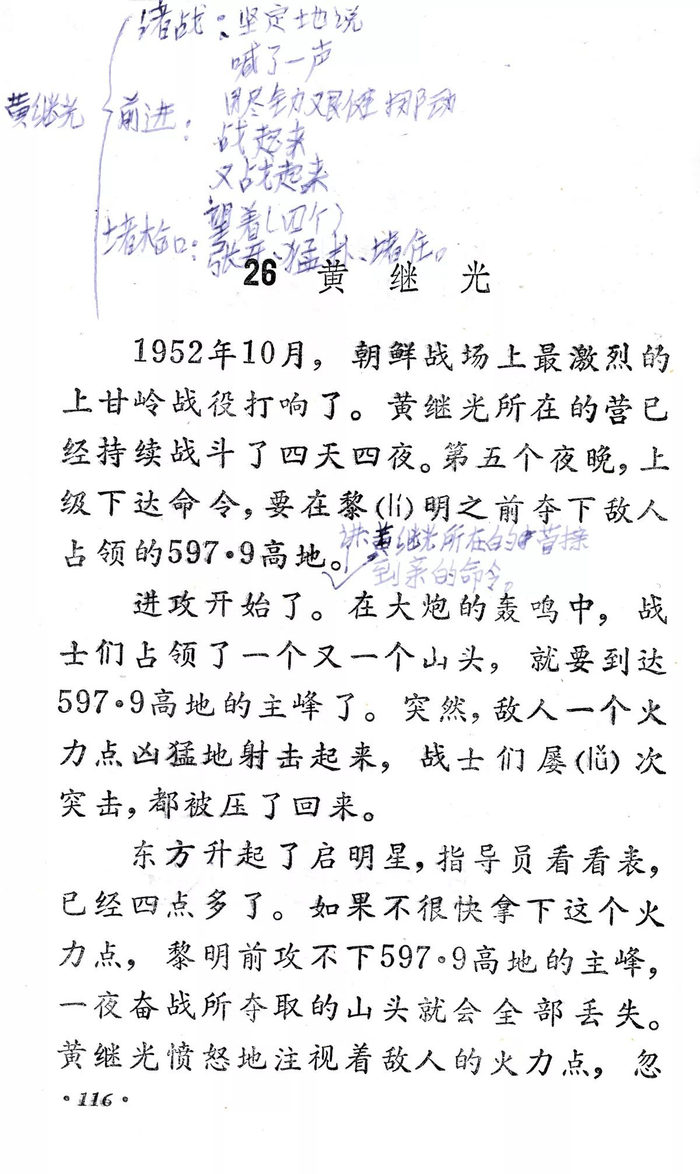 堵战：坚定地说
喊了一声
黄继光
前进：
用尽全力 艰难 挪动
战起来
又战起来
堵枪口：
望着(四个)
张开、猛扑、堵住。
26 黄继光
1952年10月，朝鲜战场上最激烈的
上甘岭战役打响了。黄继光所在的营已
经持续战斗了四天四夜。第五个夜晚，上
级下达命令，要在黎(lí)明之前夺下敌人
占领的597·9高地。
讲黄继光所在的营接
到的命令。
进攻开始了。在大炮的轰鸣中，战
士们占领了一个又一个山头，就要到达
597·9高地的主峰了。突然，敌人一个火
力点凶猛地射击起来，战士们屡(lǚ)次
突击，都被压了回来。
东方升起了启明星，指导员看看表，
已经四点多了。如果不很快拿下这个火
力点，黎明前攻不下597·9高地的主峰，
一夜奋战所夺取的山头就会全部丢失。
黄继光愤怒地注视着敌人的火力点，忽
·116·